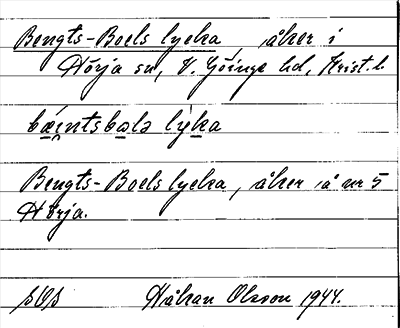 Bengts-Boels lycka, åker i
Hörja sn, V. Göinge hd, Krist. l.
bæi̯ntsbɷlə lýka
Bengts-Boels lycka, åker å nr 5
Hörja.
SOS Håkan Olsson 1944.